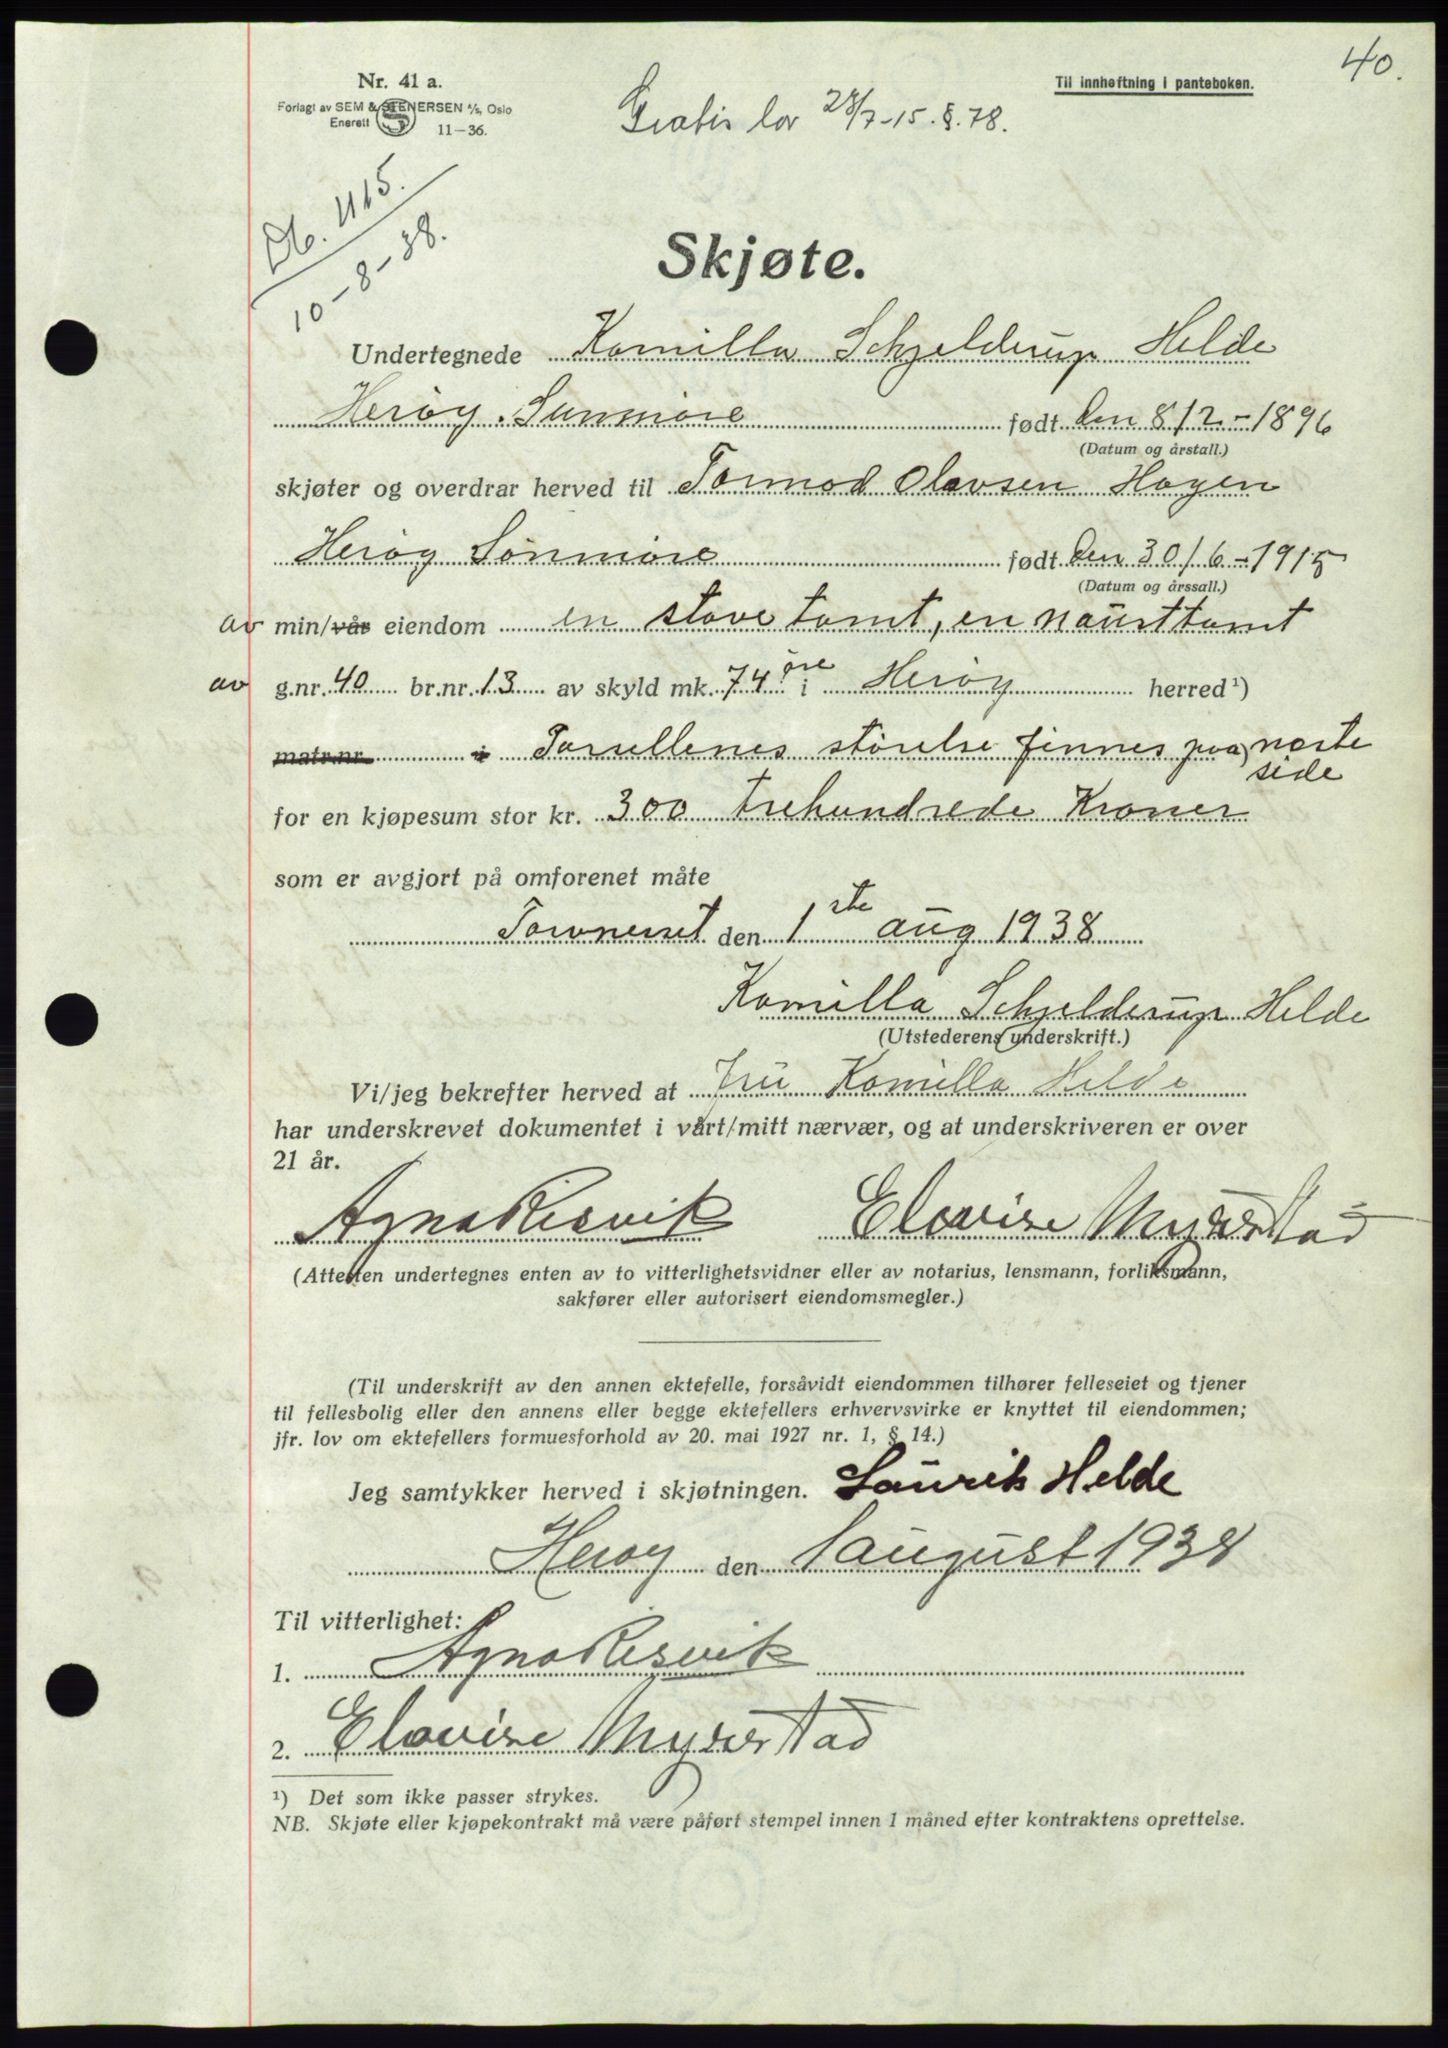 40.
Nr. 41 a.
Til innheftning i panteboken.
Forlagt av SEM & STENERSEN A/S, Oslo
Enerett
11-36.
Gratis lov 28/7-15. §. 78.
Db. 1115.
10-8-38.
Skjøte.
Undertegnede Kamilla Schjelderup Helde
Herøy. Sunmøre født den 8/2-1896
(Datum og årstall.)
skjøter og overdrar herved til Tormod Olavsen Hagen
Herøy Sønmøre født den 30/6-1915
(Datum og årssall.)
av min/vår eiendom en stove tomt, en nausttomt
av g.nr. 40 br.nr. 13 av skyld mk. 74 øre i Herøy herred ¹)
matr.nr. i Parsellenes størelse finnes paa næste
side
for en kjøpesum stor kr. 300 trehundrede Kroner
som er avgjort på omforenet måte
den 1ste aug 1938
Kamilla Schjelderup Helde
(Utstederens underskrift.)
Vi/jeg bekrefter herved at Fru Kamilla Helde
har underskrevet dokumentet i vårt/mitt nærvær, og at underskriveren er over
21 år.
Agna Risvik Elovise Myrestad
(Attesten undertegnes enten av to vitterlighetsvidner eller av notarius, lensmann, forliksmann,
sakfører eller autorisert eiendomsmegler.)
(Til underskrift av den annen ektefelle, forsåvidt eiendommen tilhører felleseiet og tjener
til fellesbolig eller den annens eller begge ektefellers erhvervsvirke er knyttet til eiendommen;
jfr. lov om ektefellers formuesforhold av 20. mai 1927 nr. 1, § 14.)
Jeg samtykker herved i skjøtningen. Laurits Helde
Herøy den 1 august 1938
Til vitterlighet:
1. Agna Risvik
2. Elovise Myrestad
¹) Det som ikke passer strykes.
NB. Skjøte eller kjøpekontrakt må være påført stempel innen 1 måned efter kontraktens oprettelse.